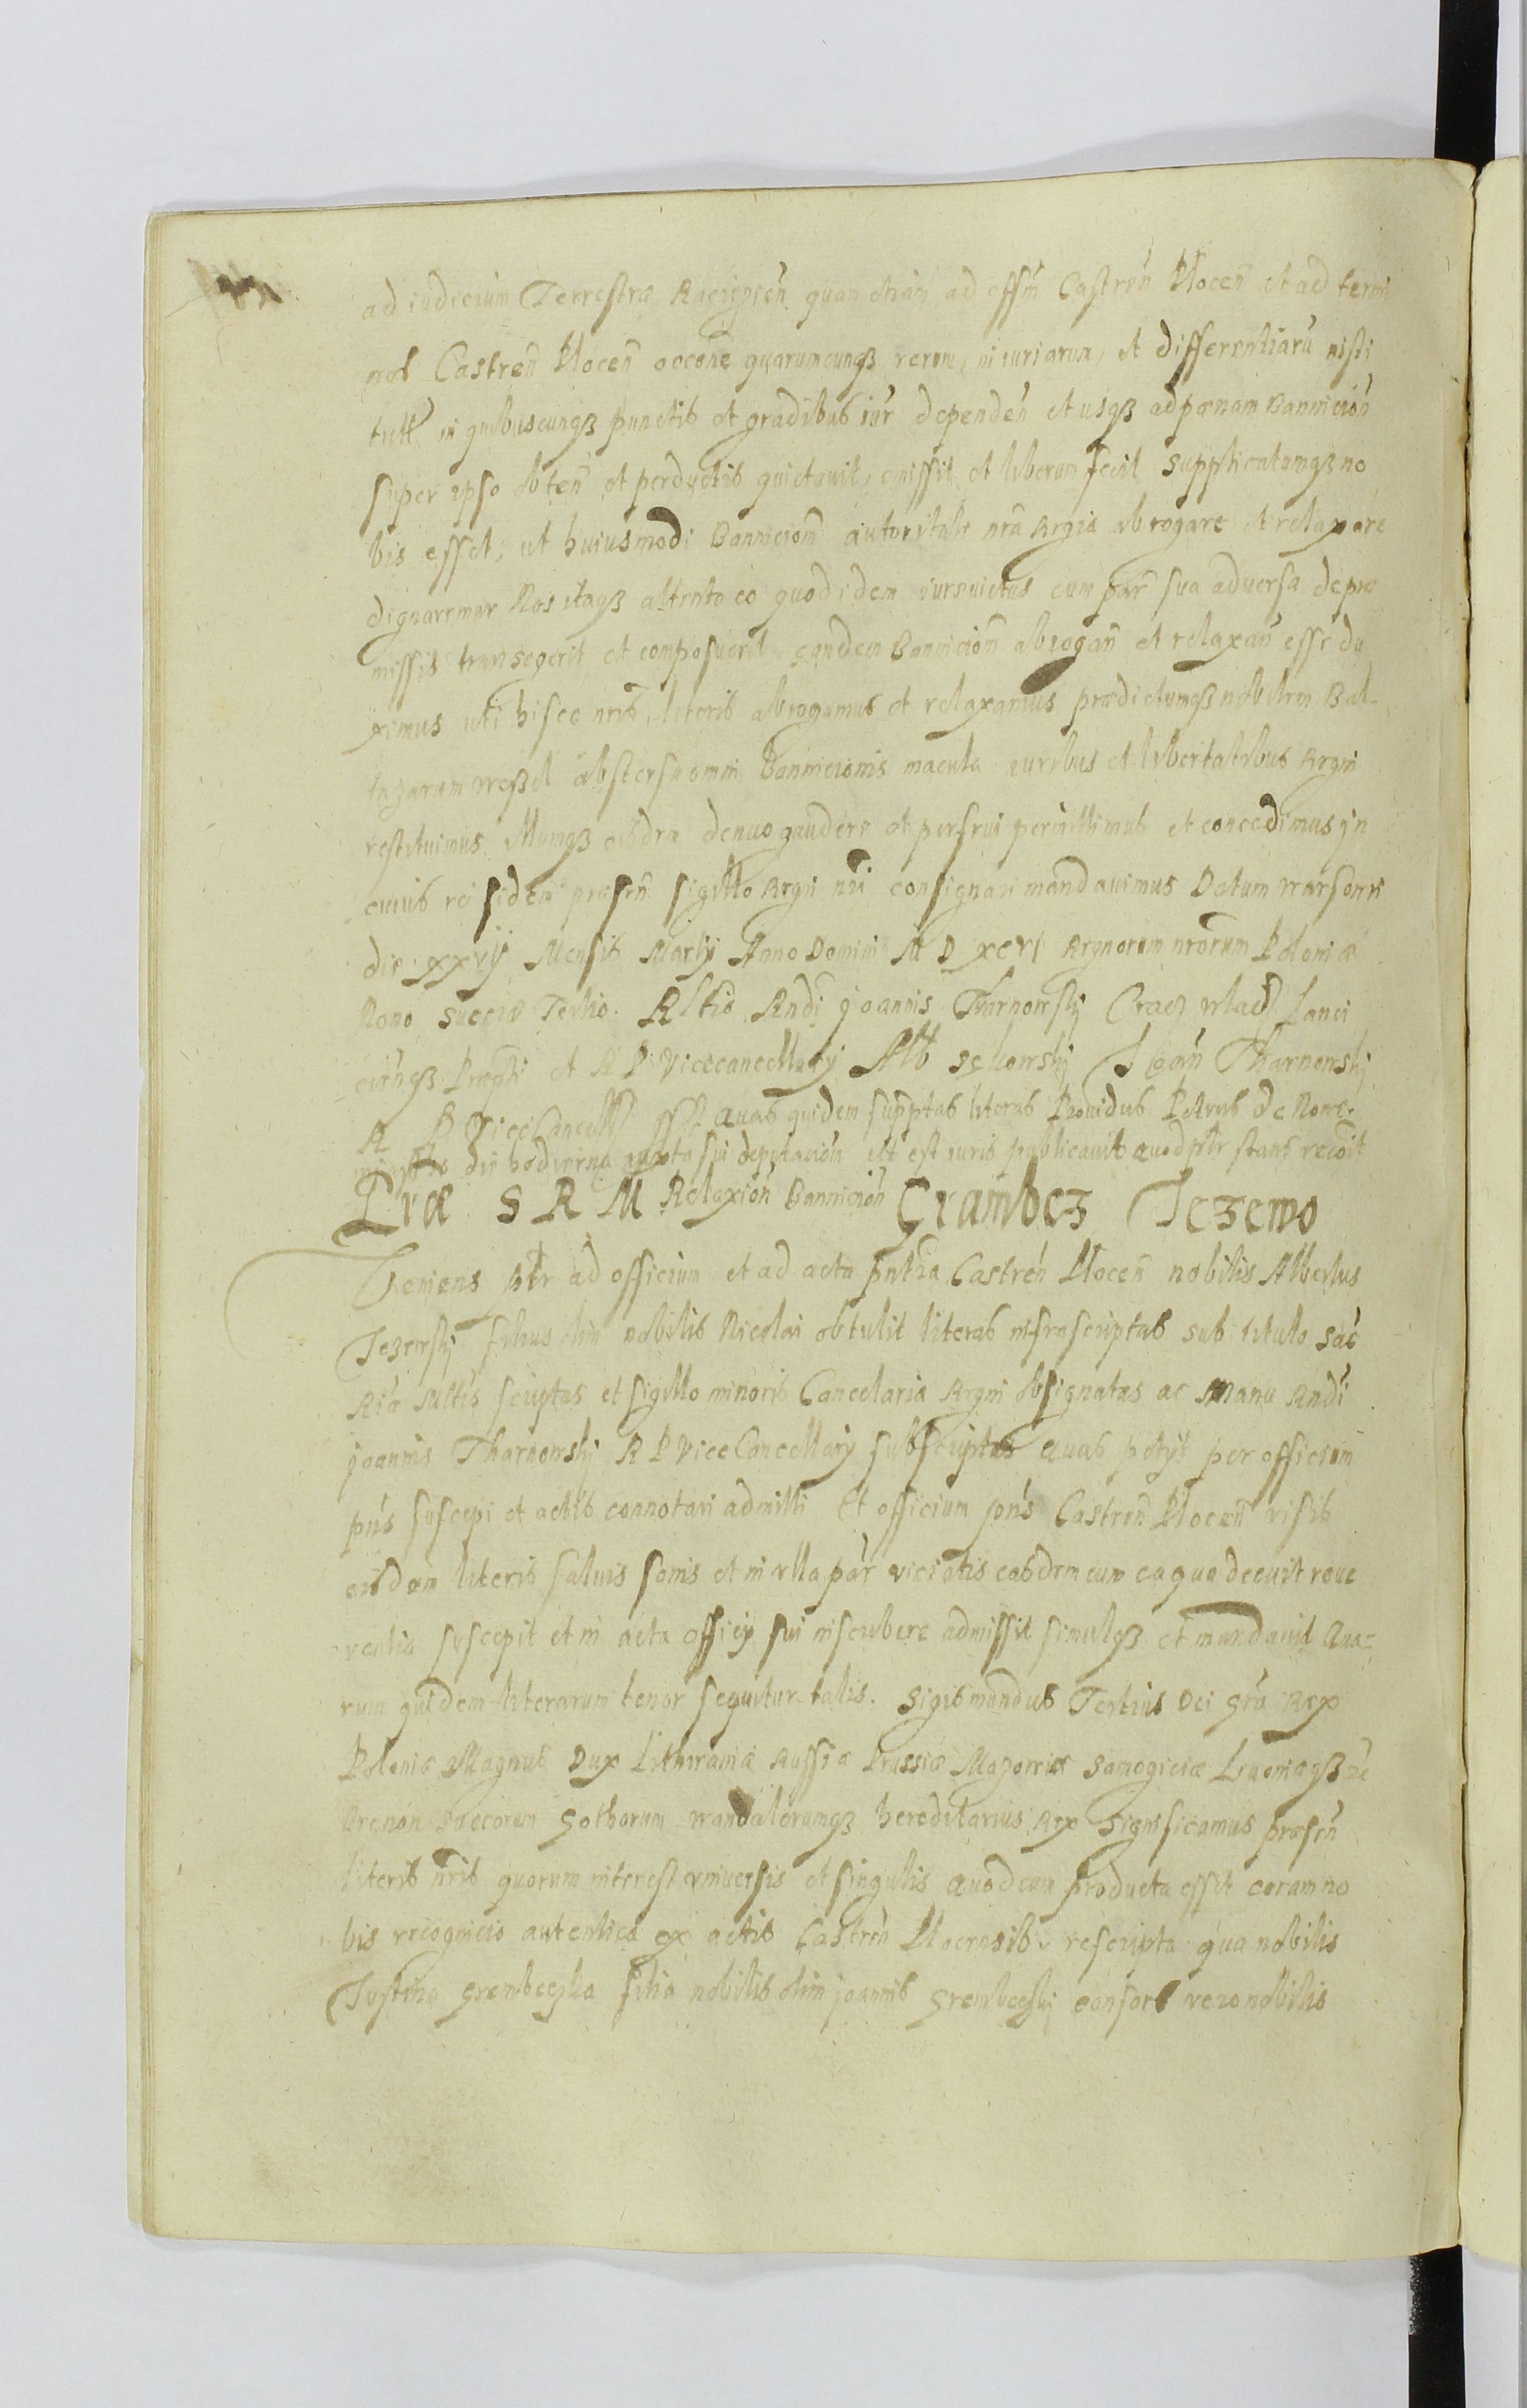 ad iudicium Terrestræ Raciązień quam etiam ad offm̄ Castreń Plocen̄ et ad termi
nos Castreń Plocen̄ occōne quarumcunqȝ rerum, iniuriarum, et differentiarū insti
tutt in quibuscunqȝ punctis et gradibus iur̄ dependeń et usqȝ ad pœnam Bannicioń
super ipso obteń et perductis quietauit, emissit et liberum fecit supplicatumqȝ no
bis esset, ut huiusmodi Bannicionē autoritate nr̄a Regia abrogare et relaxare
dignaremur Nos itaqȝ attento eo quod idem iurevictus cum par̄ sua aduersa de præ
missis transegerit et composuerit eandem Bannicion̄ abrogan̄ et relaxan̄ esse du
ximus uti hisce nr̄is literis abrogamus et relaxamus prædictumqȝ nobilem Bal-
tazarum abstersa omni Bannicionis macula iuribus et libertatibus Regni
restituimus Illumqȝ eisdem denuo gaudere et perfrui permittimus et concedimus in
cuius rei fidem præsen̄ sigillo Regni nr̄i consignari mandauimus Datum Warsoviæ
die XXVIJ Mensis Martij Anno Domini M D XCVI Regnorum nr̄orum Poloniæ
Nono Sueciæ Tertio. Rltio Rndi Joannis Tharnowskj Crac Wlad Lanci
cien̄qȝ Præpti et R P Vicecancellarij Alb Sękowskj Joan̄ Tharnowskj
R P ViceCancell sst Quas quidem supptas literas Prouidus Petrus de Nowe
ministr̄ die hodierna iuxta sui deputacion̄ ut est iuris publicauit quod pltr stans recōit
Lræ S R M Relaxion̄ Bannicion̄ Grambcz Jezewo
Veniens pltr ad officium et ad acta pn̄tia Castren̄ Plocen̄ nobilis Albertus
Jezewskj filius olim nobilis Nicolai obtulit literas infrascriptas sub titulo Sac̄
Riæ Mttis scriptas et sigillo minoris Cancelariæ Regni obsignatas ac Manu Rndi
Joannis Tharnowskj R P ViceCancellarij subscriptas Quas petijt per officium
pn̄s suscepi et actis connotari admitti Et officium pn̄s Castren̄ Plocen̄ visis
eisdem literis saluis sanis et in ulla par̄ viciatis easdem cum ea qua decuit reue
rentia suscepit et in acta officij sui inscribere admissit simulqȝ et mandauit Qua=
rum quidem literarum tenor sequitur talis. Sigismundus Tertius Dei Gr̄a Rex
Poloniæ Magnus Dux Lithwaniæ Russiæ Prussiæ Mazowiæ Samogiciæ Livoniæqȝ
nec non Suecorum Gothorum Wandalorumqȝ hereditarius Rex Significamus præsen̄
literis nr̄is quorum interest vniuersis et singulis Quod cum producta esset coram no
bis recognicio autentica ex actis Castren̄ Plocensibus rescripta qua nobilis
Justina Grembeczka filia nobilis olim Joannis Grembeczkj consors vero nobilis